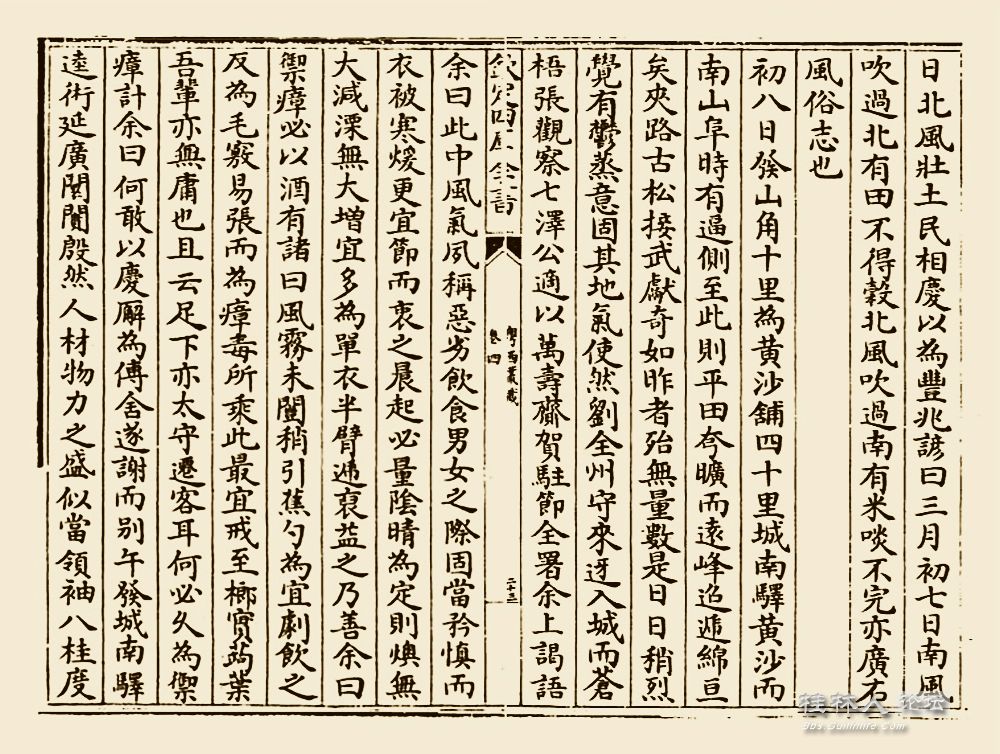 日北風壯土民相慶以為豐兆諺曰三月初七日南風
吹過北有田不得穀北風吹過南有米啖不完亦廣右
風俗志也
初八日發山角十里為黃沙舖四十里城南驛黃沙而
南山阜時有逼側至此則平田夸曠而遠峰迢遞綿亘
矣夾路古松接武獻奇如昨者殆無量數是日日稍烈
覺有鬱蒸意固其地氣使然劉全州守來迓入城而蒼
梧張觀察七澤公適以萬壽齎賀駐節全署余上謁語
欽定四庫全書
粤西叢載
卷四
二十三
余曰此中風氣夙稱惡劣飲食男女之際固當矜慎而
衣被寒煖更宜節而衷之晨起必量陰晴為定則燠無
大減溧無大增宜多為單衣半臂遞裒益之乃善余曰
禦瘴必以酒有諸曰風霧未闓稍引蕉勺為宜劇飲之
反為毛竅易張而為瘴毒所乘此最宜戒至榔實蒟葉
吾輩亦無庸也且云足下亦太守遷客耳何必久為禦
瘴計余曰何敢以慶廨為傳舍遂謝而别午發城南驛
逵術延廣闤闠殷然人材物力之盛似當領袖八桂度
桂林人论坛
bbs.guilinlife.com